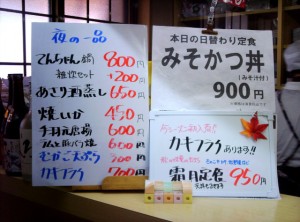 夜の一品
てんちゃん鍋 800円
雑炊セット +200円
あさり酒蒸し 650円
焼しいか 450円
手羽元唐揚 600円
バター焼 600円
むかご天ぷら 300円
カキフライ 700円
本日の日替わり定食
みそかつ丼
(みそ汁付)
900円
カキフライ
あります!!
霜月定食 950円